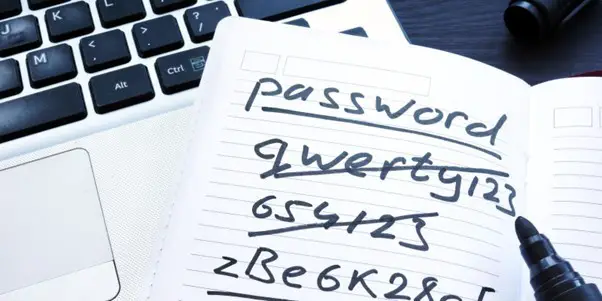 J K L
M < , > . ? /
Alt Ctrl
password
qwerty123
654123
zBe6K28